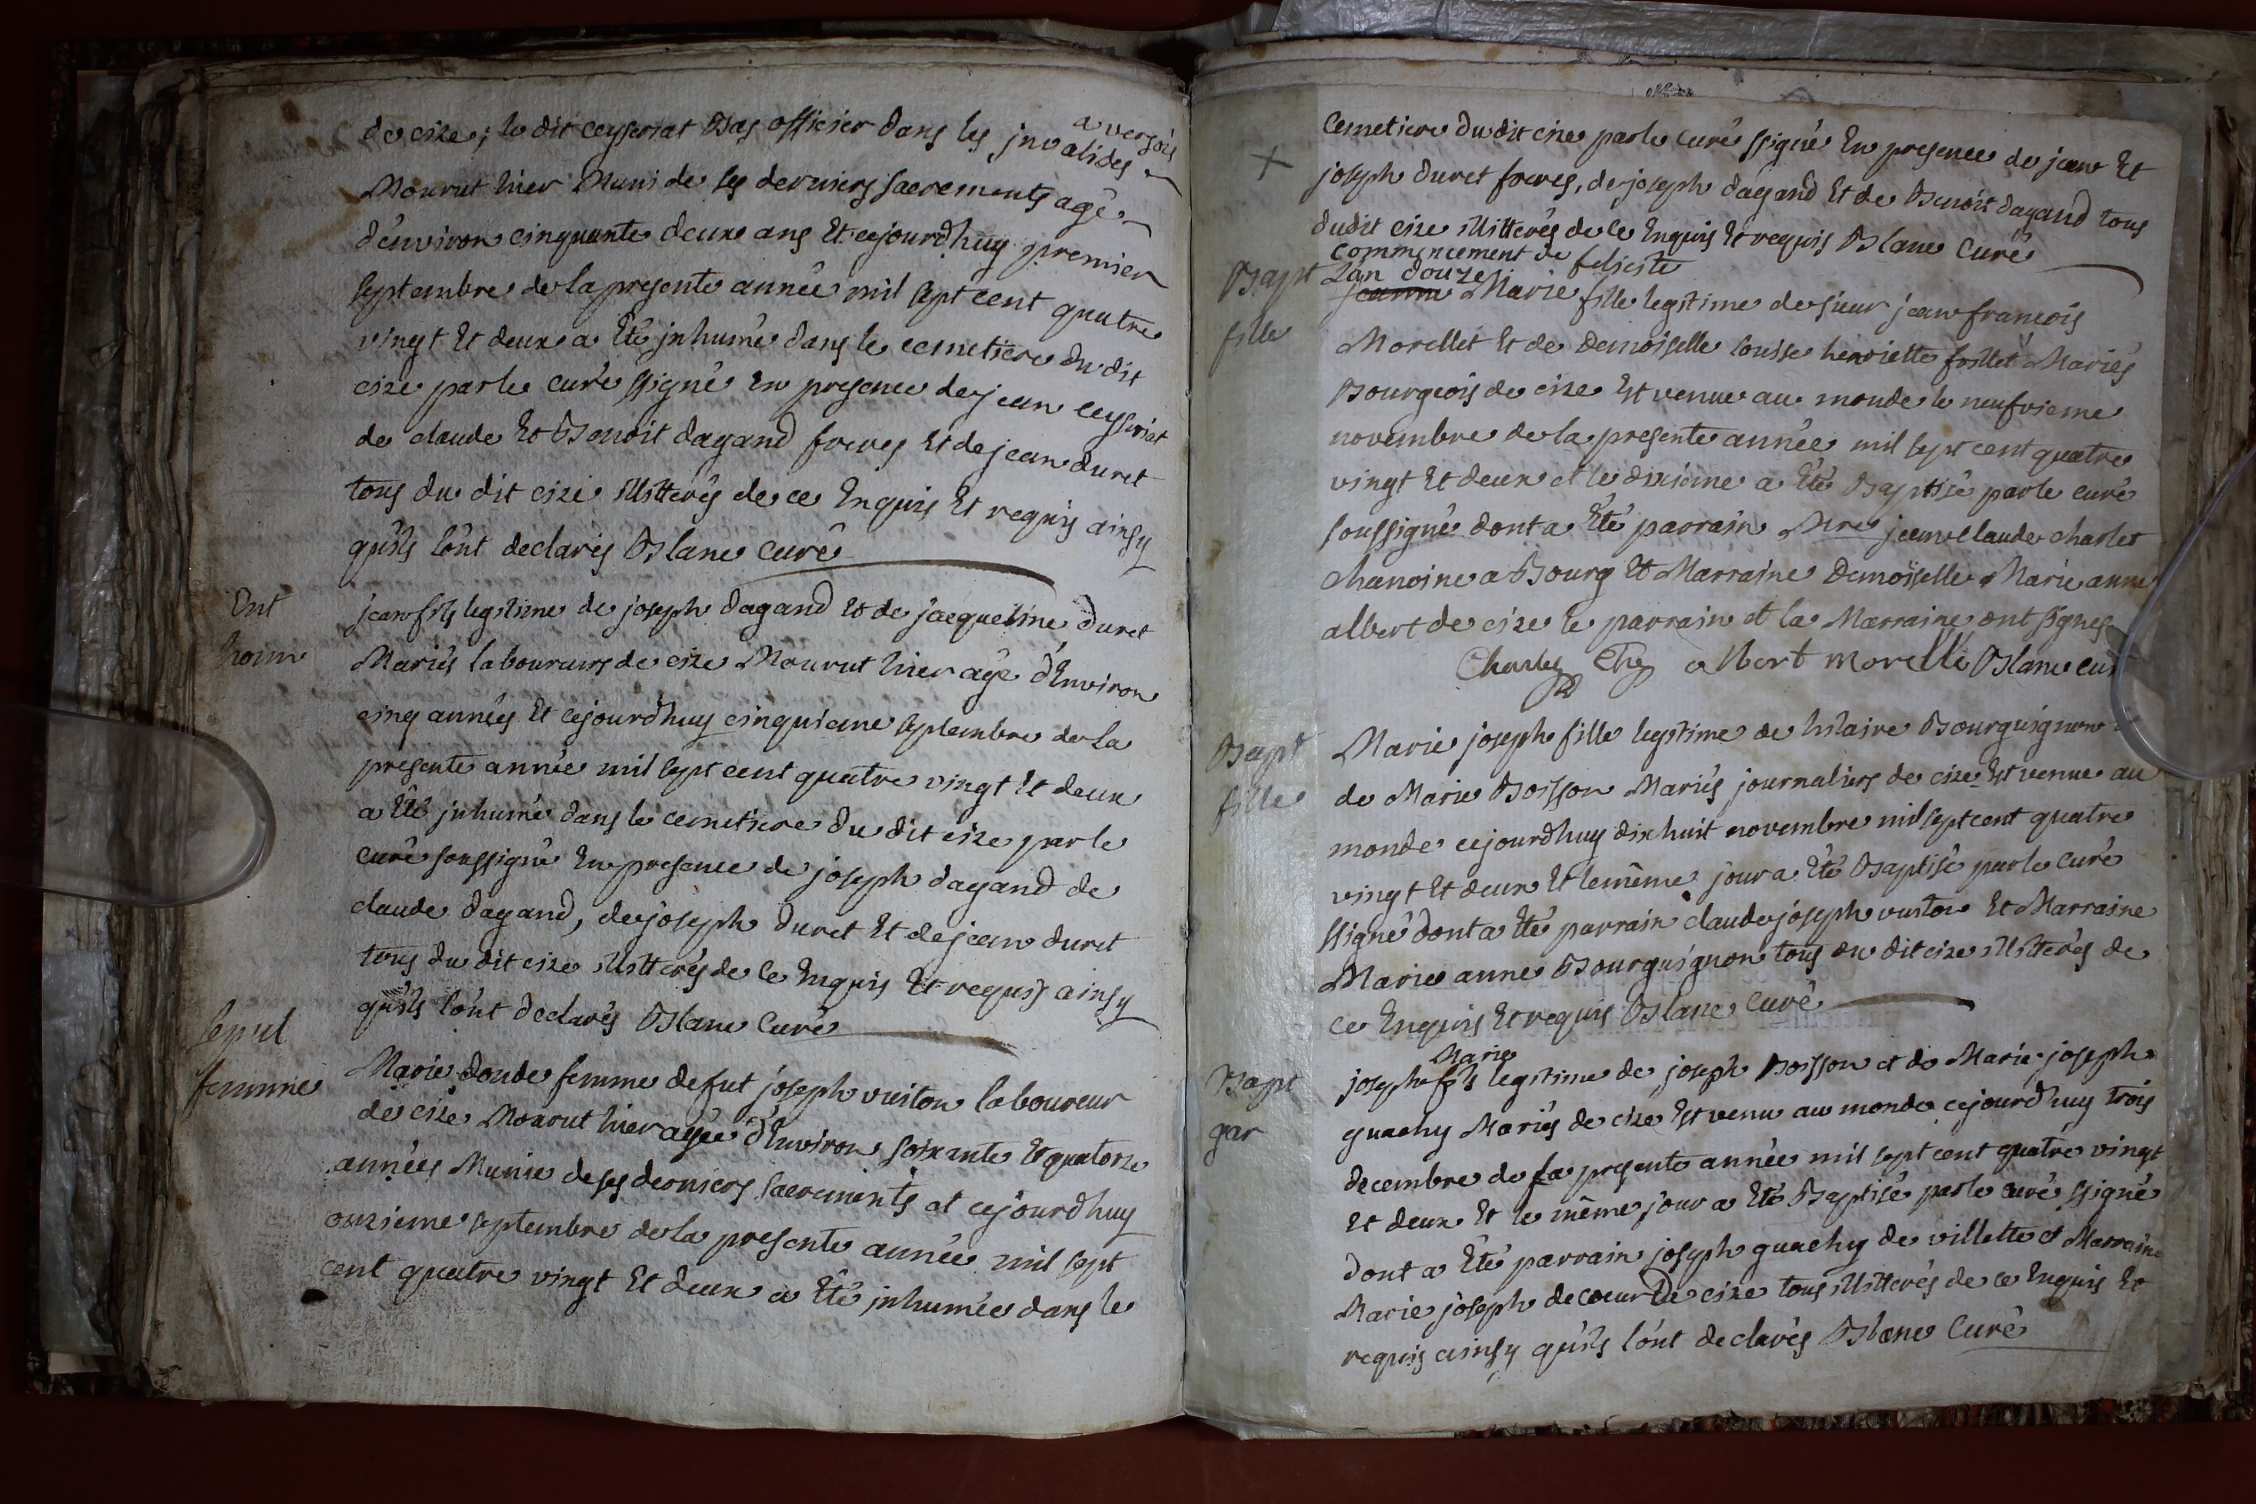 de cize ; le dit ceyseriat Bas officier dans les jnvalides
a versois
Mourut hier Muni de ses derniers sacrements agé
d'environ cinquante deux ans Et cejourdhuy premier
septembre de la presente année mil sept cent quatre
vingt Et deux a Eté jnhumé dans le cemetiere du dit
cize par le curé ssigné En presence de jean ceyseriat
de claude Et Benoit dagand freres Et de jean duret
tous du dit cize illitterés de ce Enquis Et requis ainsy
qu'ils l'ont declarés Blanc curé
Ent
hom
jean fils legitime de joseph dagand Et de jacqueline duret
Mariés laboureurs de cize Mourut hier agé d'Environ
cinq années Et cejourdhuy cinquieme septembre de la
presente année mil sept cent quatre vingt Et deux
a Eté jnhumé dans le cemetiere du dit cize par le
curé soussigné En presence de joseph dagand de
claude dagand, de joseph duret Et de jean duret
tous du dit cize illitterés de ce Enquis Et requis ainsy
qu'ils l'ont declarés Blanc Curé
sepul
femme
Marie donde femme de fut joseph vuiton laboureur
de cize Mourut hier agée d'Environ soixante Et quatorze
années Munie de ses derniers sacrements et cejourdhuy
onzieme septembre de la presente année mil sept
cent quatre vingt Et deux a Eté jnhumée dans le
cemetiere du dit cize par le curé ssigné En presence de jean Et
joseph duret freres, de joseph dagand Et de Benoit dagand tous
dudit cize illitterés de ce Enquis Et requis Blanc Curé
commencement de
Lan douze feliscite
Bapt
fille
jeanne Marie fille legitime de sieur jean francois
Morellet Et de Demoiselle louise henriette follet Mariés
Bourgeois de cize Est venue au monde le neufvieme
novembre de la presente année mil sept cent quatre
vingt Et deux et le dixieme a Eté Baptisé par le curé
soussigné dont a Eté parrain Mre jean claude charlet
chanoine a Bourg Et Marraine Demoiselle Marie anne
albert de cize le parrain et la Marraine ont signes
albert morellé Blanc cur
Bapt
fille
Marie joseph fille legitime de hilaire Bourguignon
de Marie Boisson Mariés journaliers de cize Est venue au
monde cejourdhuy dix huit novembre mil sept cent quatre
vingt Et deux Et le même jour a Eté Baptisé par le curé
ssigné dont a Eté parrain claude joseph vuiton Et Marraine
Marie anne Bourguignon tous du dit cize illitterés de
ce Enquis Et requis Blanc Curé
Bapt
gar
Marie
joseph fils legitime de joseph Boisson et de Marie joseph
guachy Mariés de cize Est venu au monde cejourdhuy trois
decembre de la presente année mil sept cent quatre vingt
Et deux Et le même jour a Eté Baptisé par le curé ssigné
dont a Eté parrain joseph guachy de villette et Marraine
Marie joseph decoeur De cize tous illitterés de ce Enquis Et
requis ainsy qu'ils l'ont declarés Blanc Curé